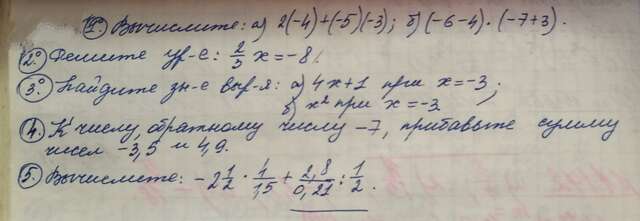 1.° Вычислите: а) 2(-4)+(-5)(-3); б) (-6-4)·(-7+3).
2.° Решите ур-е: 2/3 x = -8.
3.° Найдите зн-е выр-я: а) 4x+1 при x=-3;
б) x² при x=-3
4. К числу, обратному числу -7, прибавьте сумму
чисел -3,5 и 4,9.
5. Вычислите: -2 1/2 · 1/1,5 + 2,8/0,21 : 1/2.